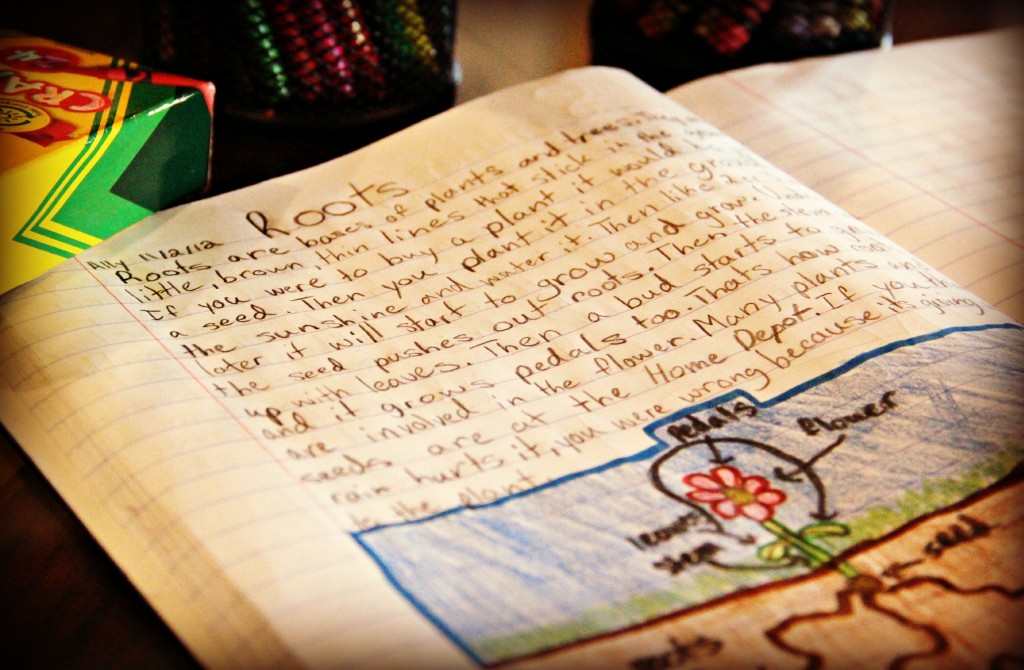 CRA
24
Ally 11/2/12
Roots
Roots are bases of plants and trees.
little, brown, thin lines that stick in the
If you were to buy a plant it would be
a seed. Then you plant it in the ground
the sunshine and water it. Then like 2
later it will start to grow and grow.
the seed pushes out roots. Then the stem
up with leaves. Then a bud starts to
and it grows pedals too. Thats how
are involved in the flower. Many plants
seeds are at the Home Depot. If you
rain hurts it, you were wrong because it's giving
to the plant.
Pedals
flower
leaves
stem
seed
roots